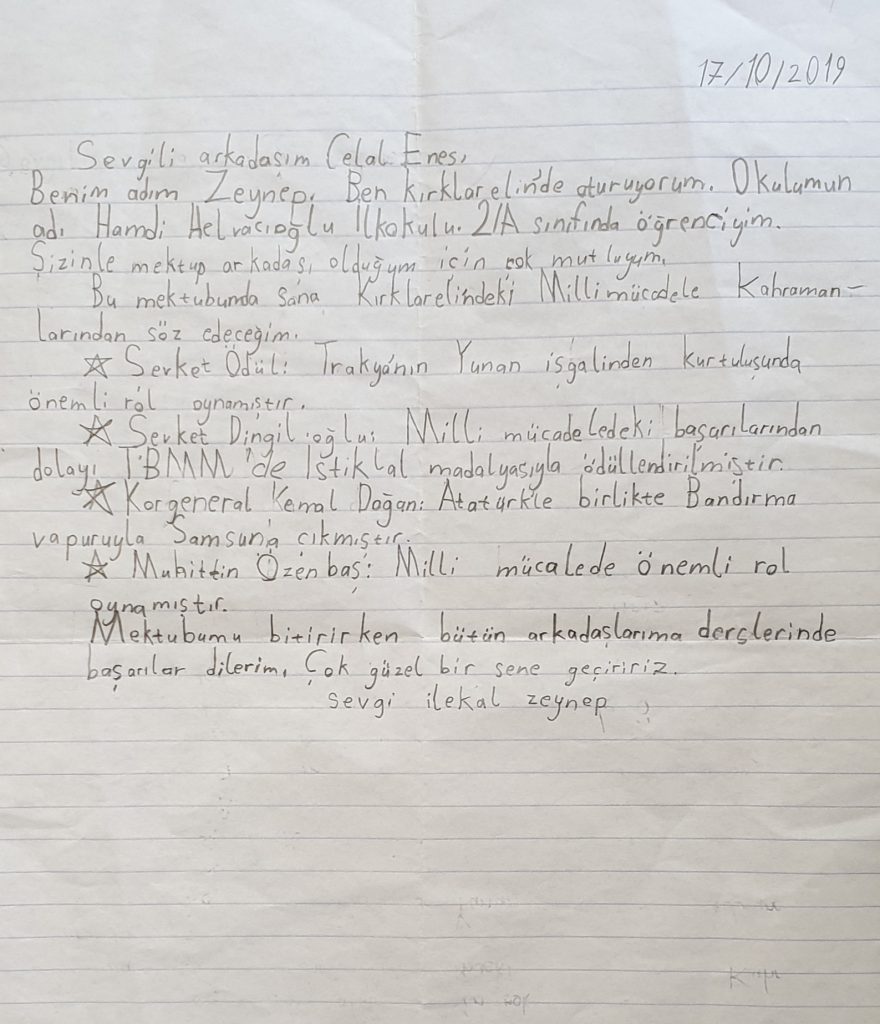 17/10/2019
Sevgili arkadaşım Celal Enes,
Benim adım Zeynep. Ben kırklarelinde oturuyorum. Okulumun
adı Hamdi Helvacıoğlu İlkokulu. 2/A sınıfında öğrenciyim.
Sizinle mektup arkadaşı olduğum için çok mutluyum.
Bu mektubumda sana Kırklarelindeki Milli mücadele Kahraman-
larından söz edeceğim.
☆ Şevket Ödül: Trakya'nın Yunan işgalinden kurtuluşunda
önemli rol oynamıştır.
☆ Şevket Dingiloğlu: Milli mücadeledeki başarılarından
dolayı TBMM'de İstiklal madalyasıyla ödüllendirilmiştir.
☆ Korgeneral Kemal Doğan: Atatürk'le birlikte Bandırma
vapuruyla Samsun'a çıkmıştır.
☆ Muhittin Özenbaş: Milli mücalede önemli rol
oynamıştır.
Mektubumu bitirirken bütün arkadaşlarıma derslerinde
başarılar dilerim. Çok güzel bir sene geçiririz.
sevgi ilekal zeynep